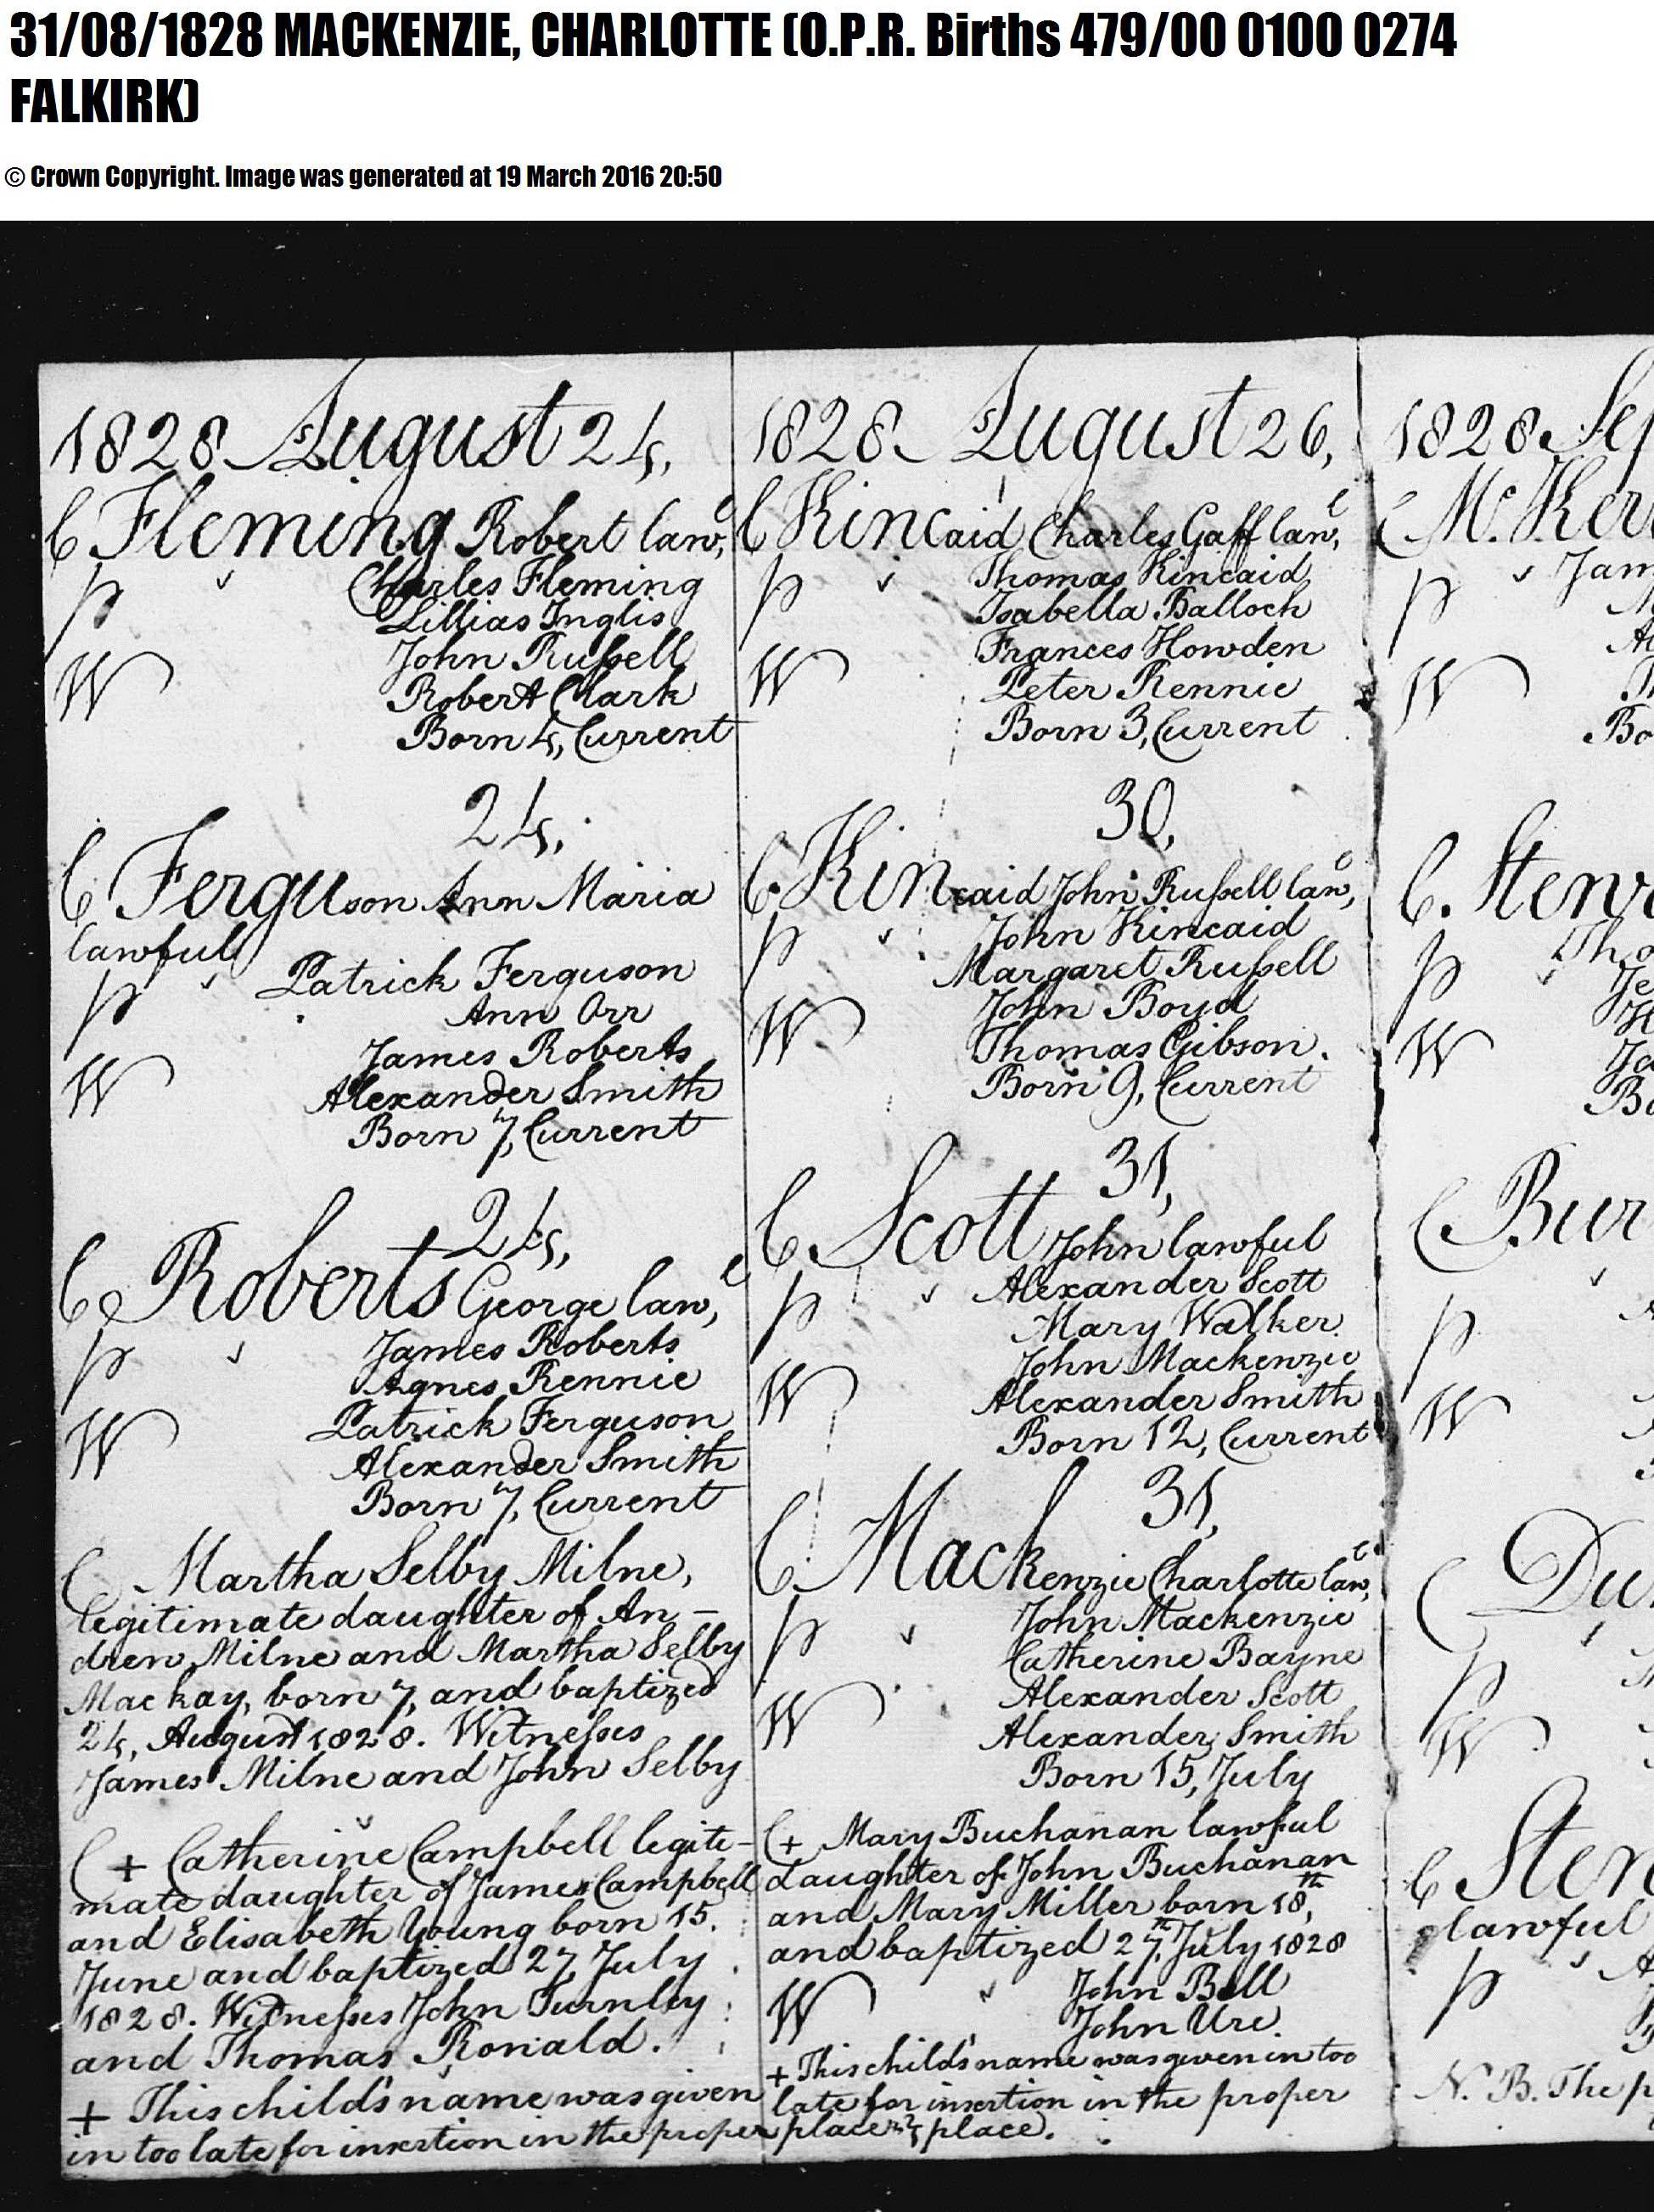 31/08/1828 MACKENZIE, CHARLOTTE (O.P.R. Births 479/00 0100 0274
FALKIRK)
© Crown Copyright. Image was generated at 19 March 2016 20:50
1828 August 24,
C Fleming Robert law,l
p Charles Fleming
Lillias Inglis
John Russell
W Robert Clark
Born 4, Current
24,
C Ferguson Ann Maria
lawful
p Patrick Ferguson
Ann Orr
James Roberts
W Alexander Smith
Born 7, Current
24,
C Roberts George law,l
p James Roberts
Agnes Rennie
W Patrick Ferguson
Alexander Smith
Born 7, Current
C Martha Selby Milne,
legitimate daughter of An-
drew Milne and Martha Selby
Mackay, born 7, and baptized
24, August 1828. Witnesses
James Milne and John Selby
C + Catherine Campbell legiti-
mate daughter of James Campbell
and Elisabeth Young born 15.
June and baptized 27, July
1828. Witnesses John Turnley
and Thomas Ronald.
+ This child's name was given
in too late for insertion in the proper place
1828 August 26,
C Kincaid Charles Gaff law,l
p Thomas Kincaid
Isabella Balloch
Frances Howden
W Peter Rennie
Born 3, Current
30,
C. Kincaid John Russell law,l
p John Kincaid
Margaret Russell
W John Boyd
Thomas Gibson.
Born 9, Current
31,
C Scott John lawful
p Alexander Scott
Mary Walker
John Mackenzie
W Alexander Smith
Born 12, Current
31,
C. Mackenzie Charlotte law,l
p John Mackenzie
Catherine Bayne
W Alexander Scott
Alexander Smith
Born 15, July
C + Mary Buchanan lawful
daughter of John Buchanan
and Mary Miller born 18,th
and baptized 27,th July 1828
W John Bell
John Ure.
+ This child's name was given in too
late for insertion in the proper
place.
1828 Sep
C Mc. Ker
p Jam
W
Bo
C. Sten
p Tho
Je
W Ja
Bo
C Bur
p
W
C Du
p
W
C Sten
lawful
p
N. B. The p